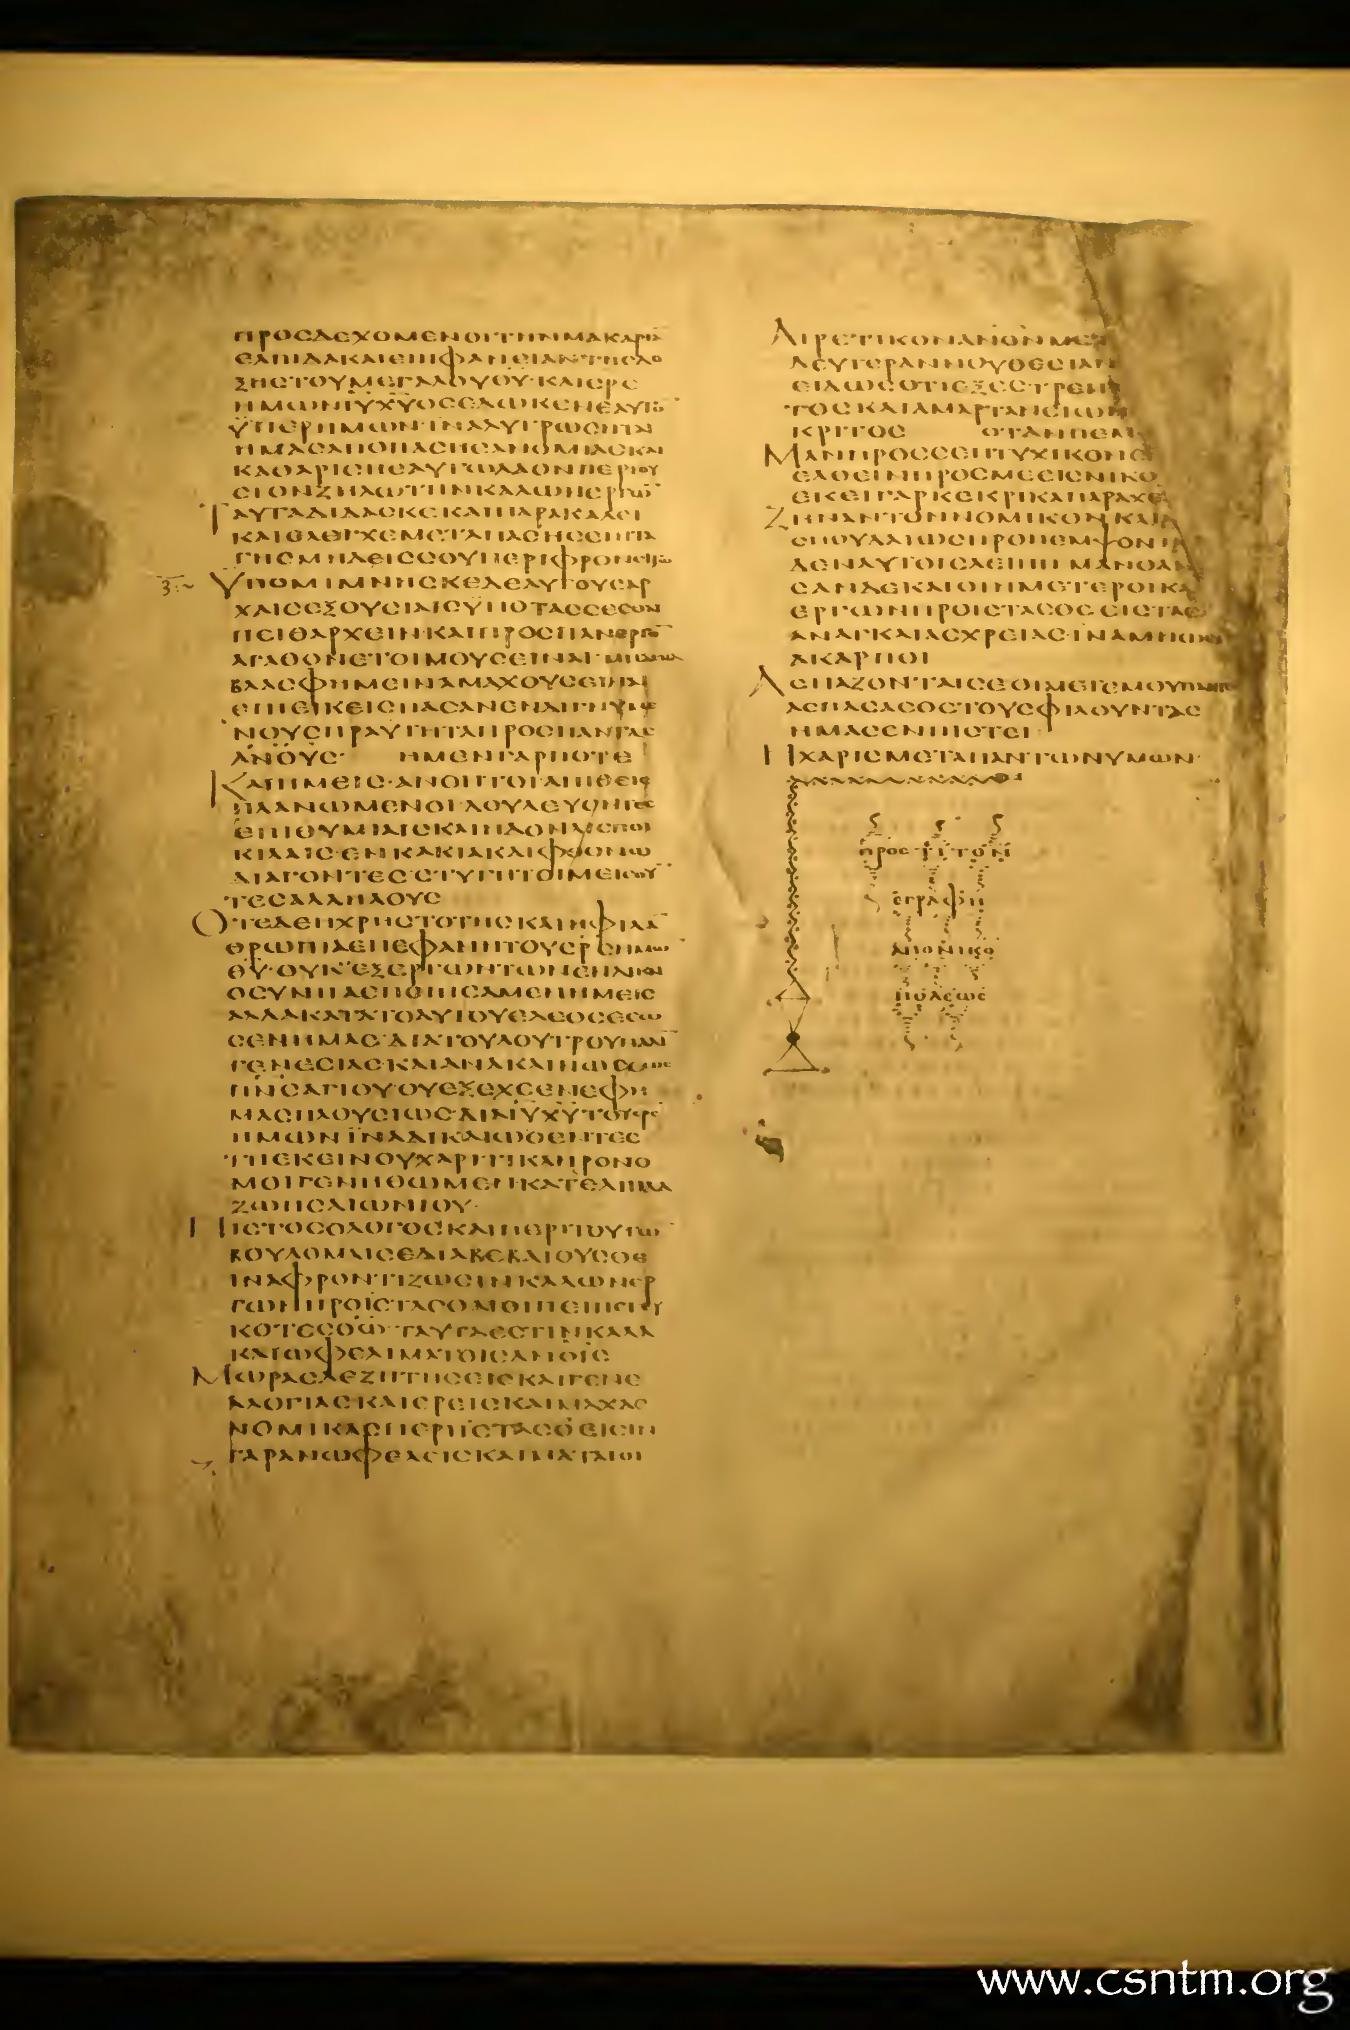 ΠΡΟΣΔΕΧΟΜΕΝΟΙΤΗΝΜΑΚΑΡΙΑ̅
ΕΛΠΙΔΑΚΑΙΕΠΙΦΑΝΕΙΑΝΤΗΣΔΟ
ΞΗΣΤΟΥΜΕΓΑΛΟΥΘ̅Υ̅·ΚΑΙΣΡ̅Σ̅
ΗΜΩΝΙ̅Υ̅Χ̅Υ̅ΟΣΕΔΩΚΕΝΕΑΥΤΟ̅
ΫΠΕΡΗΜΩΝ·ΙΝΑΛΥΤΡΩΣΗΤΑΙ
ΗΜΑΣΑΠΟΠΑΣΗΣΑΝΟΜΙΑΣΚΑΙ
ΚΑΘΑΡΙΣΗΕΑΥΤΩΛΑΟΝΠΕΡΙΟΥ
ΣΙΟΝΖΗΛΩΤΗΝΚΑΛΩΝΕΡΓΩ̅
ΤΑΥΤΑΛΑΛΕΙΚΑΙΠΑΡΑΚΑΛΕΙ
ΚΑΙΕΛΕΓΧΕΜΕΤΑΠΑΣΗΣΕΠΙΤΑ
ΓΗΣΜΗΔΕΙΣΣΟΥΠΕΡΙΦΡΟΝΕΙΤΩ
ΥΠΟΜΙΜΝΗΣΚΕΔΕΑΥΤΟΥΣΑΡ
ΧΑΙΣΕΞΟΥΣΙΑΙΣΫΠΟΤΑΣΣΕΣΘΑΙ
ΠΕΙΘΑΡΧΕΙΝ·ΚΑΙΠΡΟΣΠΑΝΕΡΓΟ̅
ΑΓΑΘΟΝΕΤΟΙΜΟΥΣΕΙΝΑΙ·ΜΗΔΕΝΑ
ΒΛΑΣΦΗΜΕΙΝΑΜΑΧΟΥΣΕΙΝΑΙ
ΕΠΙΕΙΚΕΙΣΠΑΣΑΝΕΝΔΙΓΝΥΜΕ
ΝΟΥΣΠΡΑΥΤΗΤΑΠΡΟΣΠΑΝΤΑΣ
ΑΝ̅Ο̅Υ̅Σ̅· ΗΜΕΝΓΑΡΠΟΤΕ
ΚΑΙΗΜΕΙΣ·ΑΝΟΗΤΟΙΑΠΙΘΕΙΣ
ΠΛΑΝΩΜΕΝΟΙ·ΔΟΥΛΕΥΟΝΤΕΣ
ΕΠΙΘΥΜΙΑΙΣΚΑΙΗΔΟΝΑΙΣΠΟΙ
ΚΙΛΑΙΣ·ΕΝΚΑΚΙΑΚΑΙΦΘΟΝΩ
ΔΙΑΓΟΝΤΕΣ·ΣΤΥΓΗΤΟΙΜΕΙΣΟΥ̅
ΤΕΣΑΛΛΗΛΟΥΣ
ΟΤΕΔΕΗΧΡΗΣΤΟΤΗΣΚΑΙΗΦΙΛΑ̅
ΘΡΩΠΙΑΕΠΕΦΑΝΗΤΟΥΣΡ̅Σ̅ΗΜΩ̅
Θ̅Υ̅·ΟΥΚΕΞΕΡΓΩΝΤΩΝΕΝΔΙΚΑΙ
ΟΣΥΝΗΑΕΠΟΙΗΣΑΜΕΝΗΜΕΙΣ
ΑΛΛΑΚΑΤΑΤΟΑΥΤΟΥΕΛΕΟΣΕΣΩ
ΣΕΝΗΜΑΣ·ΔΙΑΤΟΥΛΟΥΤΡΟΥΠΑΛΙ̅
ΓΕΝΕΣΙΑΣΚΑΙΑΝΑΚΑΙΝΩΣΕΩΣ
Π̅Ν̅Σ̅ΑΓΙΟΥ·ΟΥΕΞΕΧΕΕΝΕΦΗ
ΜΑΣΠΛΟΥΣΙΩΣ·ΔΙΑΙ̅Υ̅Χ̅Υ̅ΤΟΥΣΡ̅Σ̅
ΗΜΩΝΙΝΑΔΙΚΑΙΩΘΕΝΤΕΣ
ΤΗΕΚΕΙΝΟΥΧΑΡΙΤΙΚΛΗΡΟΝΟ
ΜΟΙΓΕΝΗΘΩΜΕΝΚΑΤΕΛΠΙΔΑ
ΖΩΗΣΑΙΩΝΙΟΥ·
ΠΙΣΤΟΣΟΛΟΓΟΣΚΑΙΠΕΡΙΤΟΥΤΩ̅
ΒΟΥΛΟΜΑΙΣΕΔΙΑΒΕΒΑΙΟΥΣΘΕ
ΙΝΑΦΡΟΝΤΙΖΩΣΙΝΚΑΛΩΝΕΡ
ΓΩΝΠΡΟΪΣΤΑΣΘΑΙΟΙΠΕΠΙΣΤΕΥ
ΚΟΤΕΣΘΩ̅·ΤΑΥΤΑΕΣΤΙΝΚΑΛΑ
ΚΑΙΩΦΕΛΙΜΑΤΟΙΣΑΝ̅Ο̅Ι̅Σ̅
ΜΩΡΑΣΔΕΖΗΤΗΣΕΙΣΚΑΙΓΕΝΕ
ΑΛΟΓΙΑΣΚΑΙΕΡΕΙΣΚΑΙΜΑΧΑΣ
ΝΟΜΙΚΑΣΠΕΡΙΙΣΤΑΣΟ·ΕΙΣΙΝ
ΓΑΡΑΝΩΦΕΛΕΙΣΚΑΙΜΑΤΑΙΟΙ
ΑΙΡΕΤΙΚΟΝΑΝ̅Ο̅Ν̅ΜΕΤ
ΔΕΥΤΕΡΑΝΝΟΥΘΕΣΙΑΝ
ΕΙΔΩΣΟΤΙΕΞΕΣΤΡΕΠ
ΤΟΣΚΑΙΑΜΑΡΤΑΝΕΙΩΝ
ΚΡΙΤΟΣ ΟΤΑΝΠΕΜ
ΜΑΝΠΡΟΣΣΕΗΤΥΧΙΚΟΝΣ
ΕΛΘΕΙΝΠΡΟΣΜΕΕΙΣΝΙΚΟ
ΕΚΕΙΓΑΡΚΕΚΡΙΚΑΠΑΡΑΧΕ
ΖΗΝΑΝΤΟΝΝΟΜΙΚΟΝΚΑΙΑ
ΣΠΟΥΔΑΙΩΣΠΡΟΠΕΜΨΟΝΙ
ΔΕΝΑΥΤΟΙΣΛΕΙΠΗ ΜΑΝΘΑΝ
ΣΑΝΔΕΚΑΙΟΙΗΜΕΤΕΡΟΙΚΑ
ΕΡΓΩΝΠΡΟΙΣΤΑΣΘΕΕΙΣΤΑΣ
ΑΝΑΓΚΑΙΑΣΧΡΕΙΑΣ·ΙΝΑΜΗΩΣΙΝ
ΑΚΑΡΠΟΙ
ΑΣΠΑΖΟΝΤΑΙΣΕΟΙΜΕΤΕΜΟΥΠΑΝΤΕΣ
ΑΣΠΑΣΑΣΘΕΤΟΥΣΦΙΛΟΥΝΤΑΣ
ΗΜΑΣΕΝΠΙΣΤΕΙ·
ΗΧΑΡΙΣΜΕΤΑΠΑΝΤΩΝΥΜΩΝ·
προς τιτον
εγραφη
απο νικο
πολεως
www.csntm.org